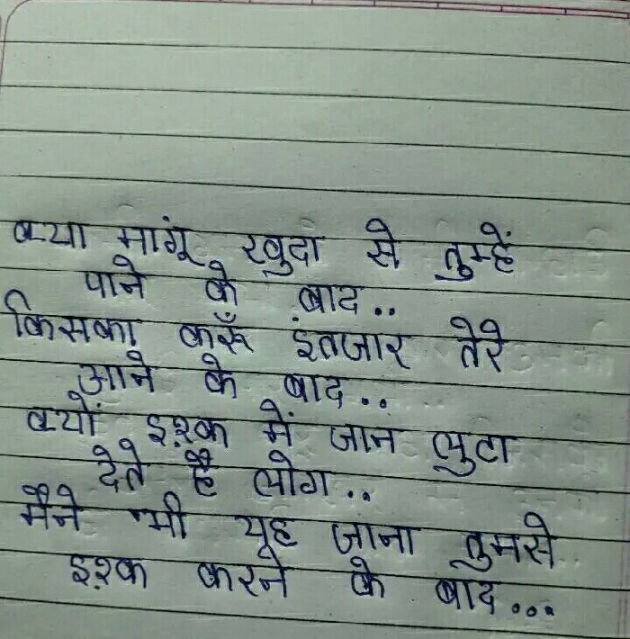 क्या मांगूं खुदा से तुम्हें
पाने के बाद..
किसका करूँ इंतजार तेरे
आने के बाद..
क्यों इश्क में जान लुटा
देते है लोग..
मैने भी यह जाना तुमसे
इश्क करने के बाद...